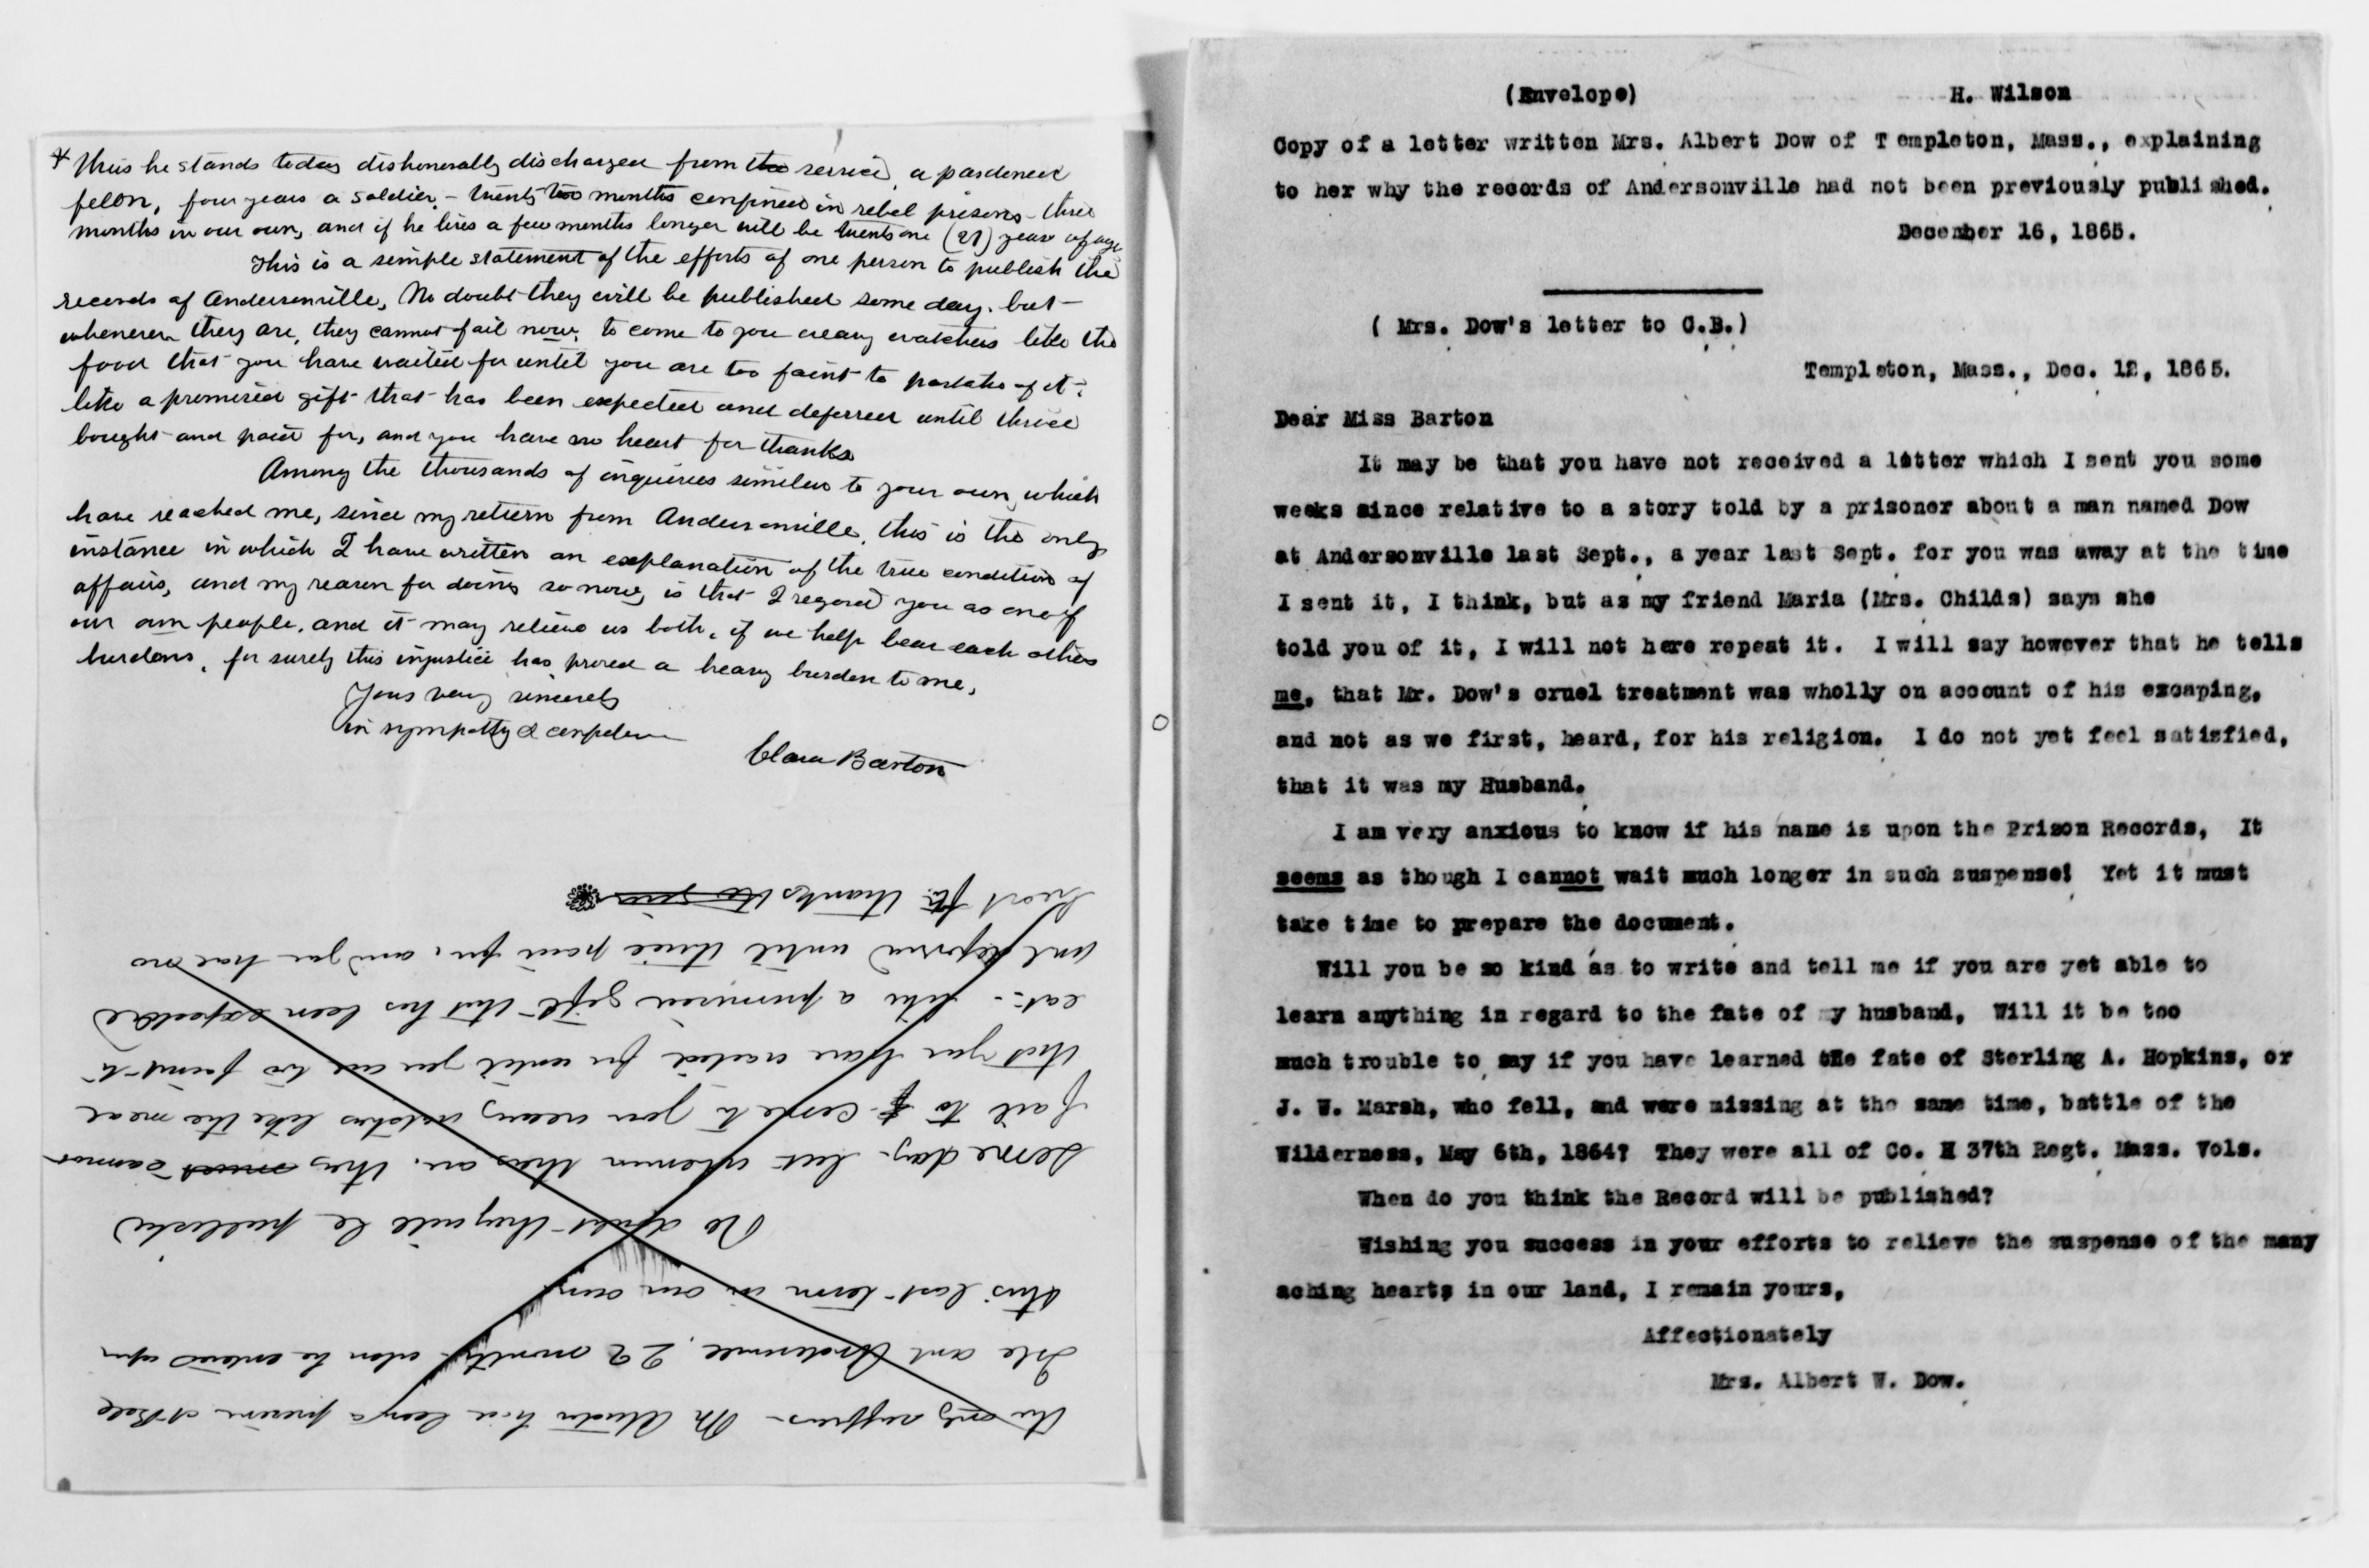 * Thus he stands today dishonorably discharged from the service, a pardoned
felon, four years a soldier, - twenty two months confined in rebel prisons - three
months in our own, and if he lives a few months longer will be twenty one (21) years of age
This is a simple statement of the efforts of one person to publish the
records of Andersonville, No doubt they will be published some day. but
whenever they are, they cannot fail now, to come to you weary watchers like the
food that you have waited for until you are too faint to partake of it -
like a promised gift that has been expected and deferred until thrice
bought and paid for, and you have no heart for thanks
Among the thousands of inquiries similar to your own, which
have reached me, since my return from Andersonville, this is the only
instance in which I have written an explanation of the true condition of
affairs, and my reason for doing so now, is that I regard you as one of
our own people, and it may relieve us both, if we help bear each others
burdens, for surely this injustice has proved a heavy burden to me,
Yours very sincerely
in sympathy &
Clara Barton
the only sufferers - Mr Atwater had been a prisoner at Belle
Isle and Andersonville, 22 months when he entered upon
this last term in our own
No doubt they will be published
some day - but whenever they are, they must cannot
fail to come to you weary watchers like the meal
that you have waited for until you are too faint to
eat - like a promised gift that has been expected
and deferred until thrice paid for, and you have no
heart for thanks
(Envelope) H. Wilson
Copy of a letter written Mrs. Albert Dow of Templeton, Mass., explaining
to her why the records of Andersonville had not been previously published.
December 16, 1865.
( Mrs. Dow's letter to C.B.)
Templeton, Mass., Dec. 12, 1865.
Dear Miss Barton
It may be that you have not received a letter which I sent you some
weeks since relative to a story told by a prisoner about a man named Dow
at Andersonville last Sept., a year last Sept. for you was away at the time
I sent it, I think, but as my friend Maria (Mrs. Childs) says she
told you of it, I will not here repeat it. I will say however that he tells
me, that Mr. Dow's cruel treatment was wholly on account of his excaping,
and not as we first, heard, for his religion. I do not yet feel satisfied,
that it was my Husband.
I am very anxious to know if his name is upon the Prison Records, It
seems as though I cannot wait much longer in such suspense! Yet it must
take time to prepare the document.
Will you be so kind as to write and tell me if you are yet able to
learn anything in regard to the fate of my husband, Will it be too
much trouble to say if you have learned the fate of Sterling A. Hopkins, or
J. W. Marsh, who fell, and were missing at the same time, battle of the
Wilderness, May 6th, 1864? They were all of Co. H 37th Regt. Mass. Vols.
When do you think the Record will be published?
Wishing you success in your efforts to relieve the suspense of the many
aching hearts in our land, I remain yours,
Affectionately
Mrs. Albert W. Dow.